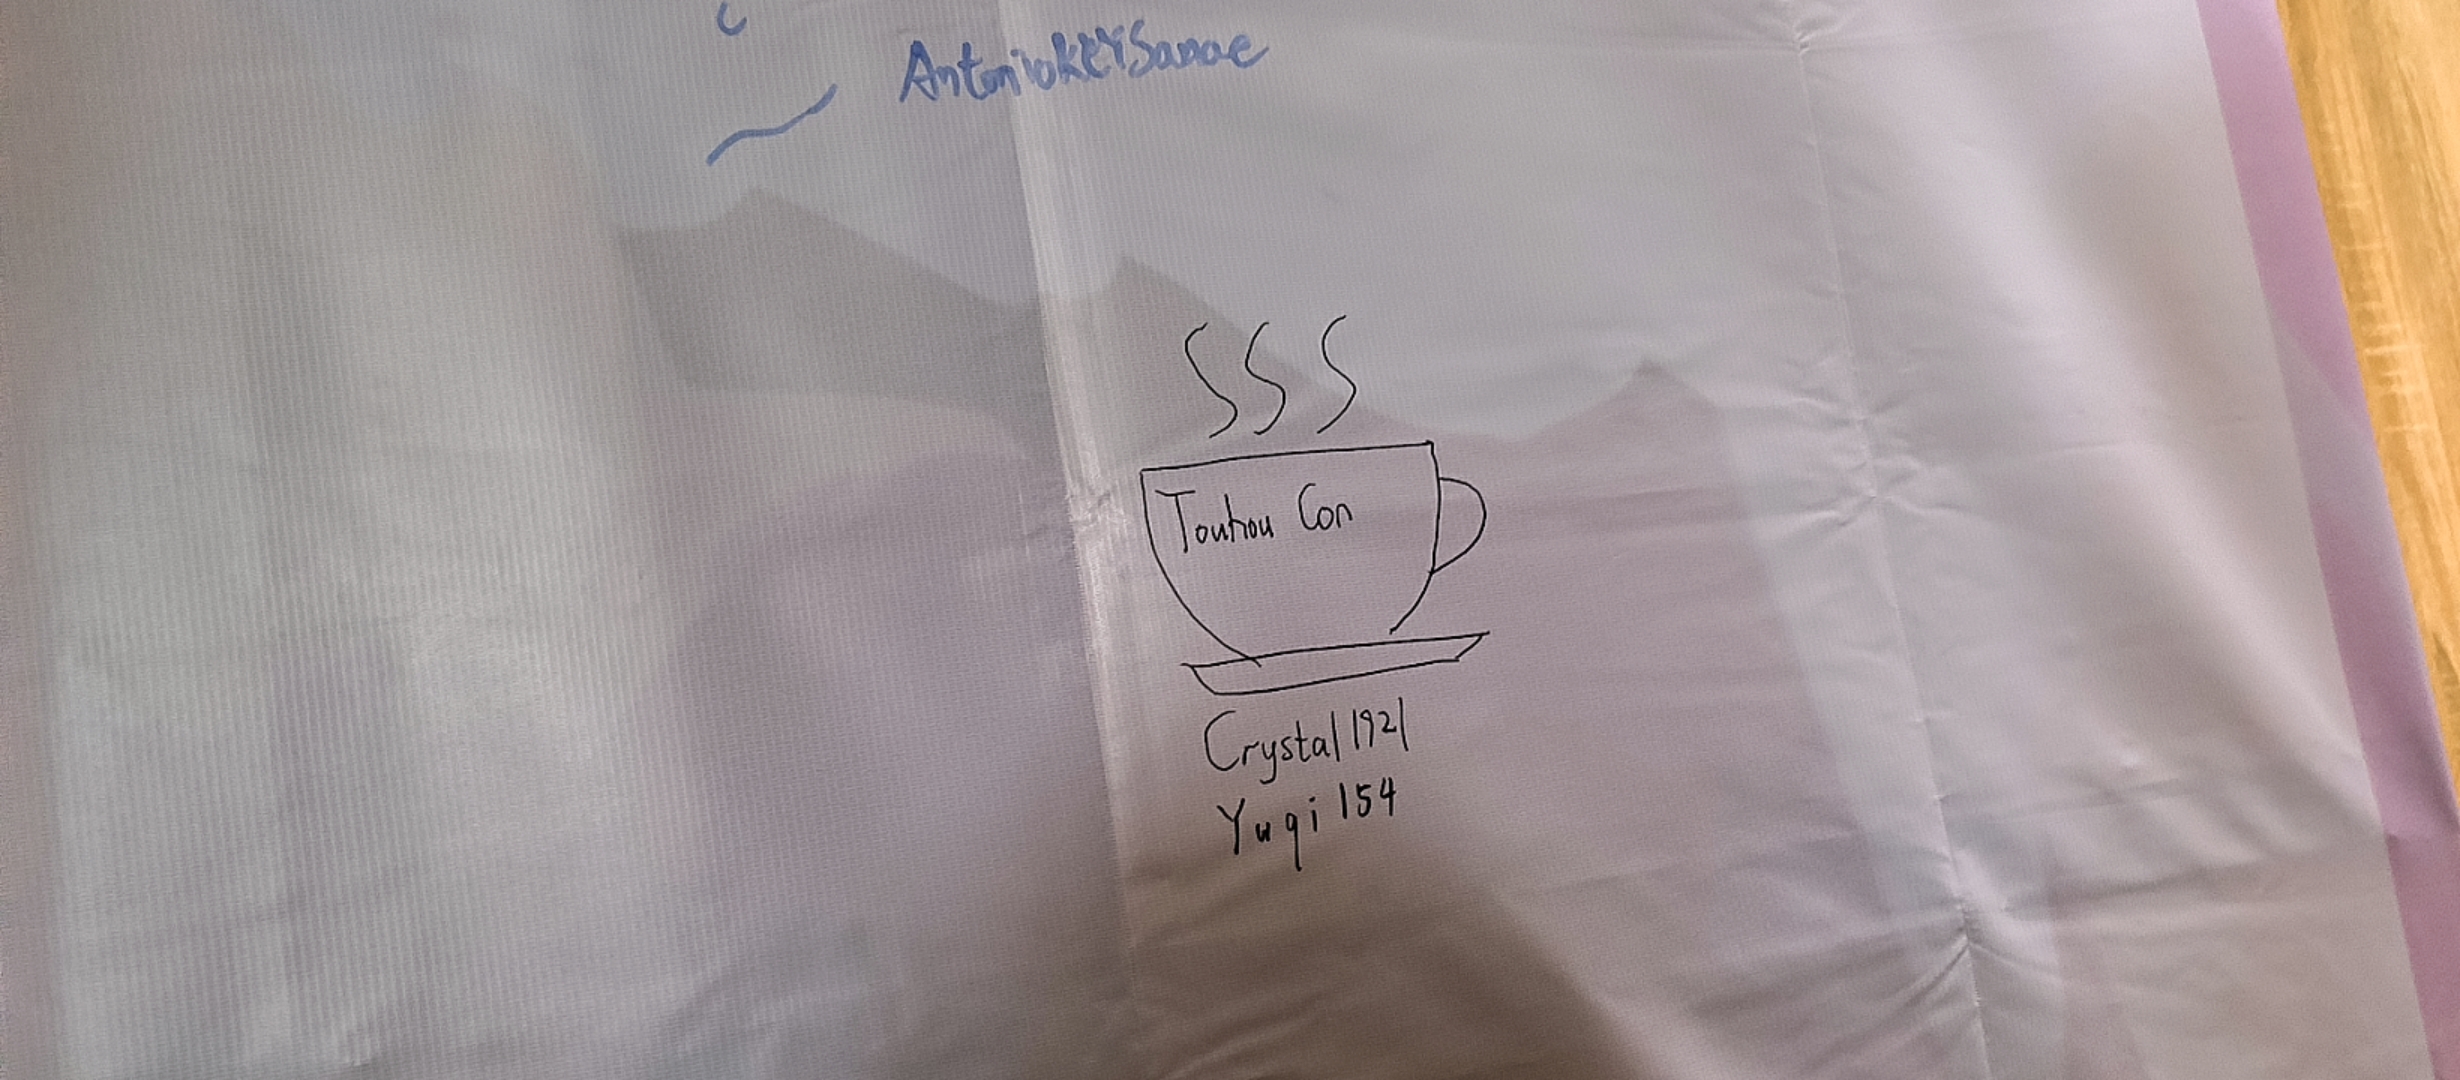 AntoniokEYSanae
Touhou Con
Crystal 1921
Yuqi 154